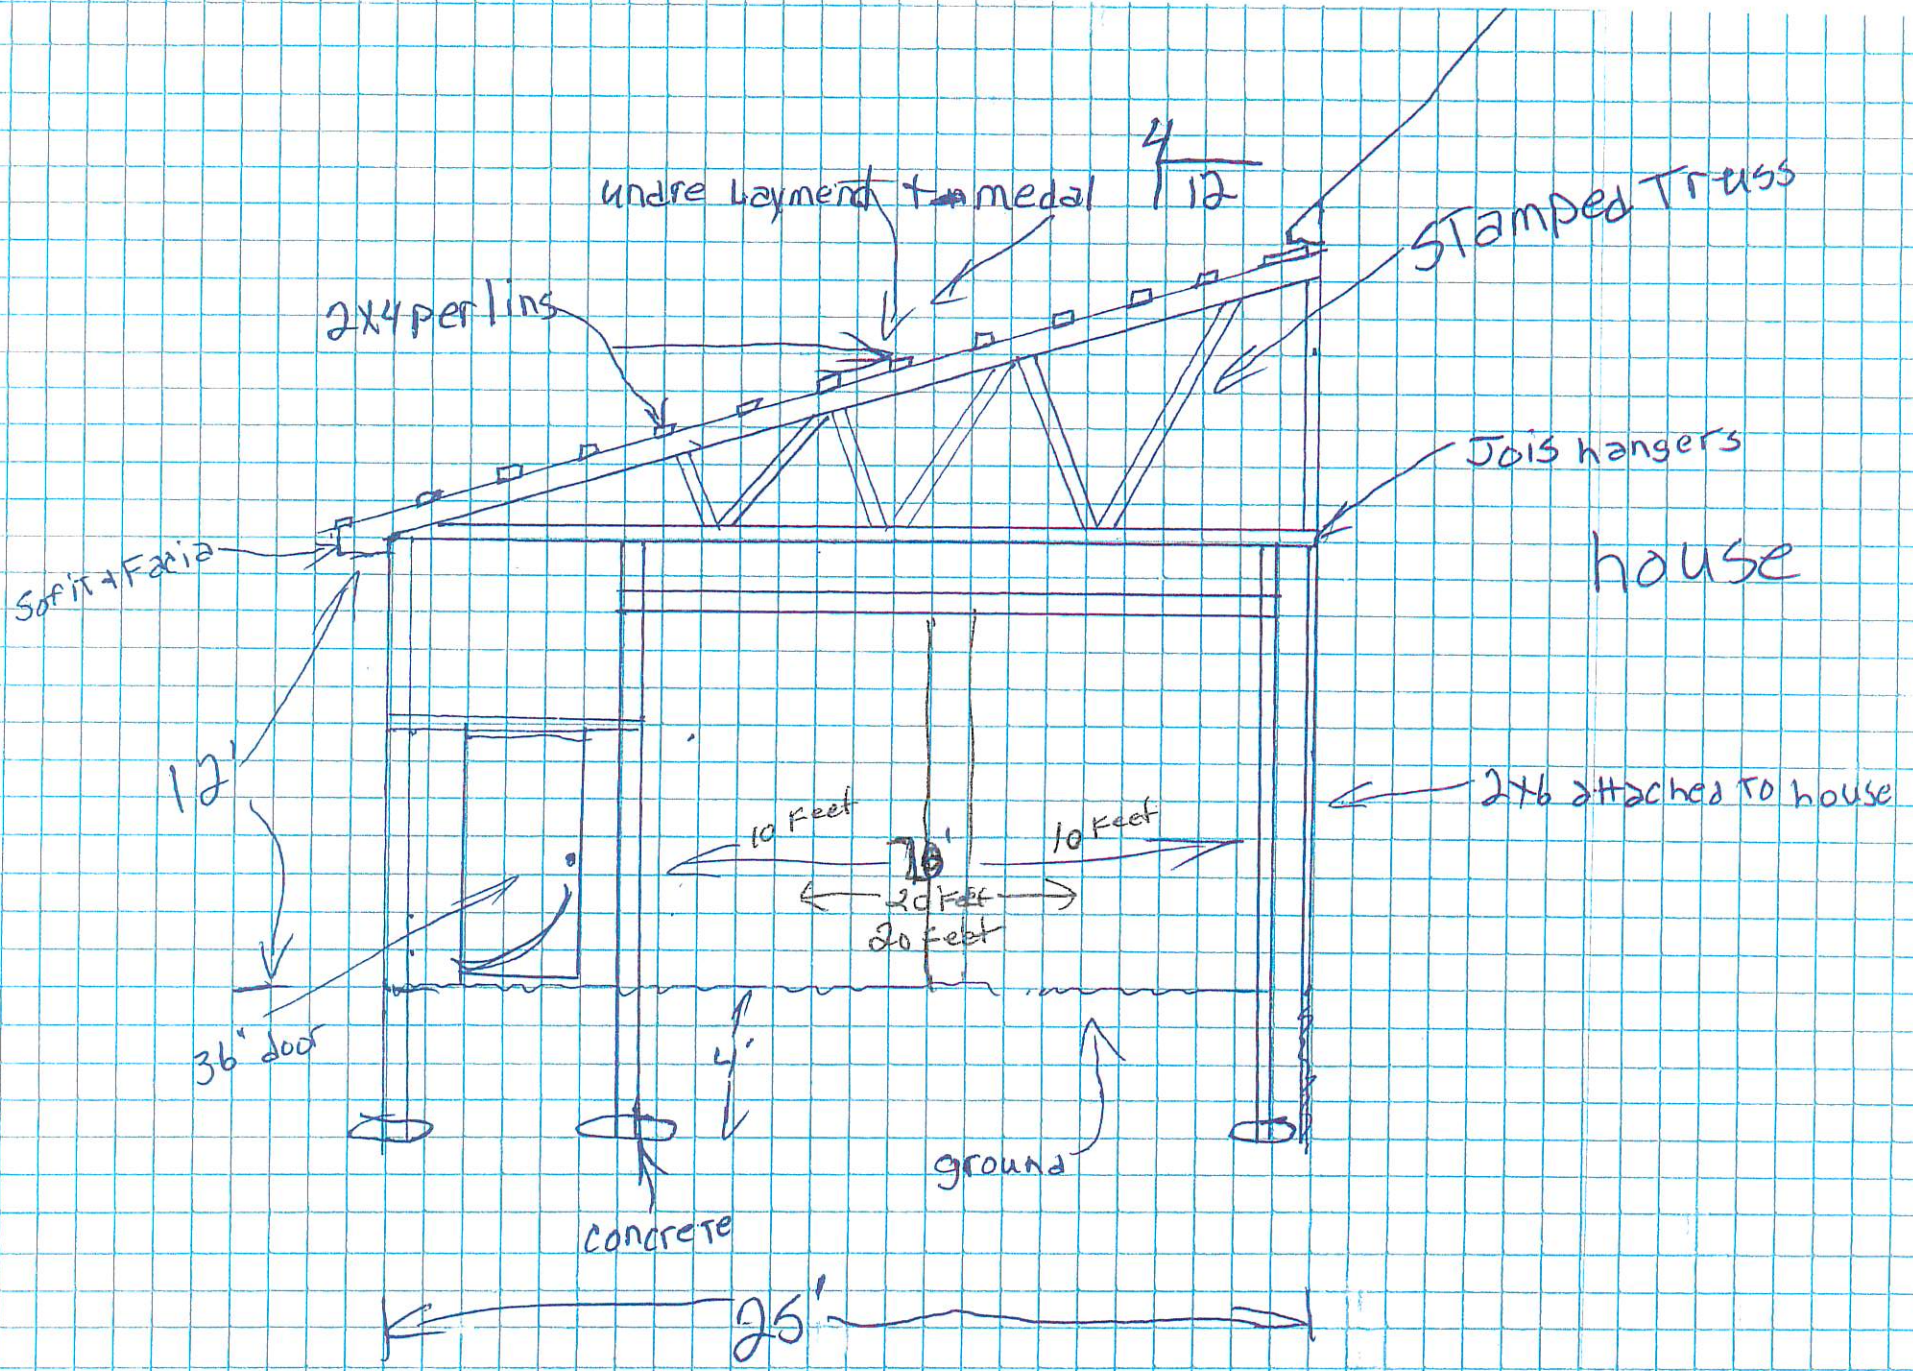 4
12
undre Layment + medal
STamped Truss
2x4 perlins
Jois hangers
Sofit + Facia
house
12'
2x6 attached To house
10 Feet
10 Feet
20 Feet
20 Feet
36" door
4'
ground
concrete
25'